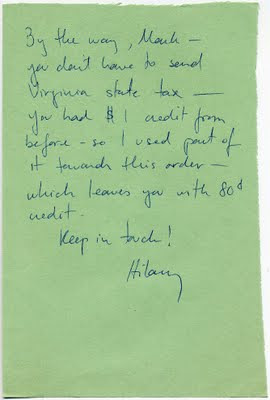 By the way, Mark —
you don't have to send
Virginia state tax —
you had $1 credit from
before – so I used part of
it towards this order —
which leaves you with 80¢
credit.
Keep in touch!
Hilary